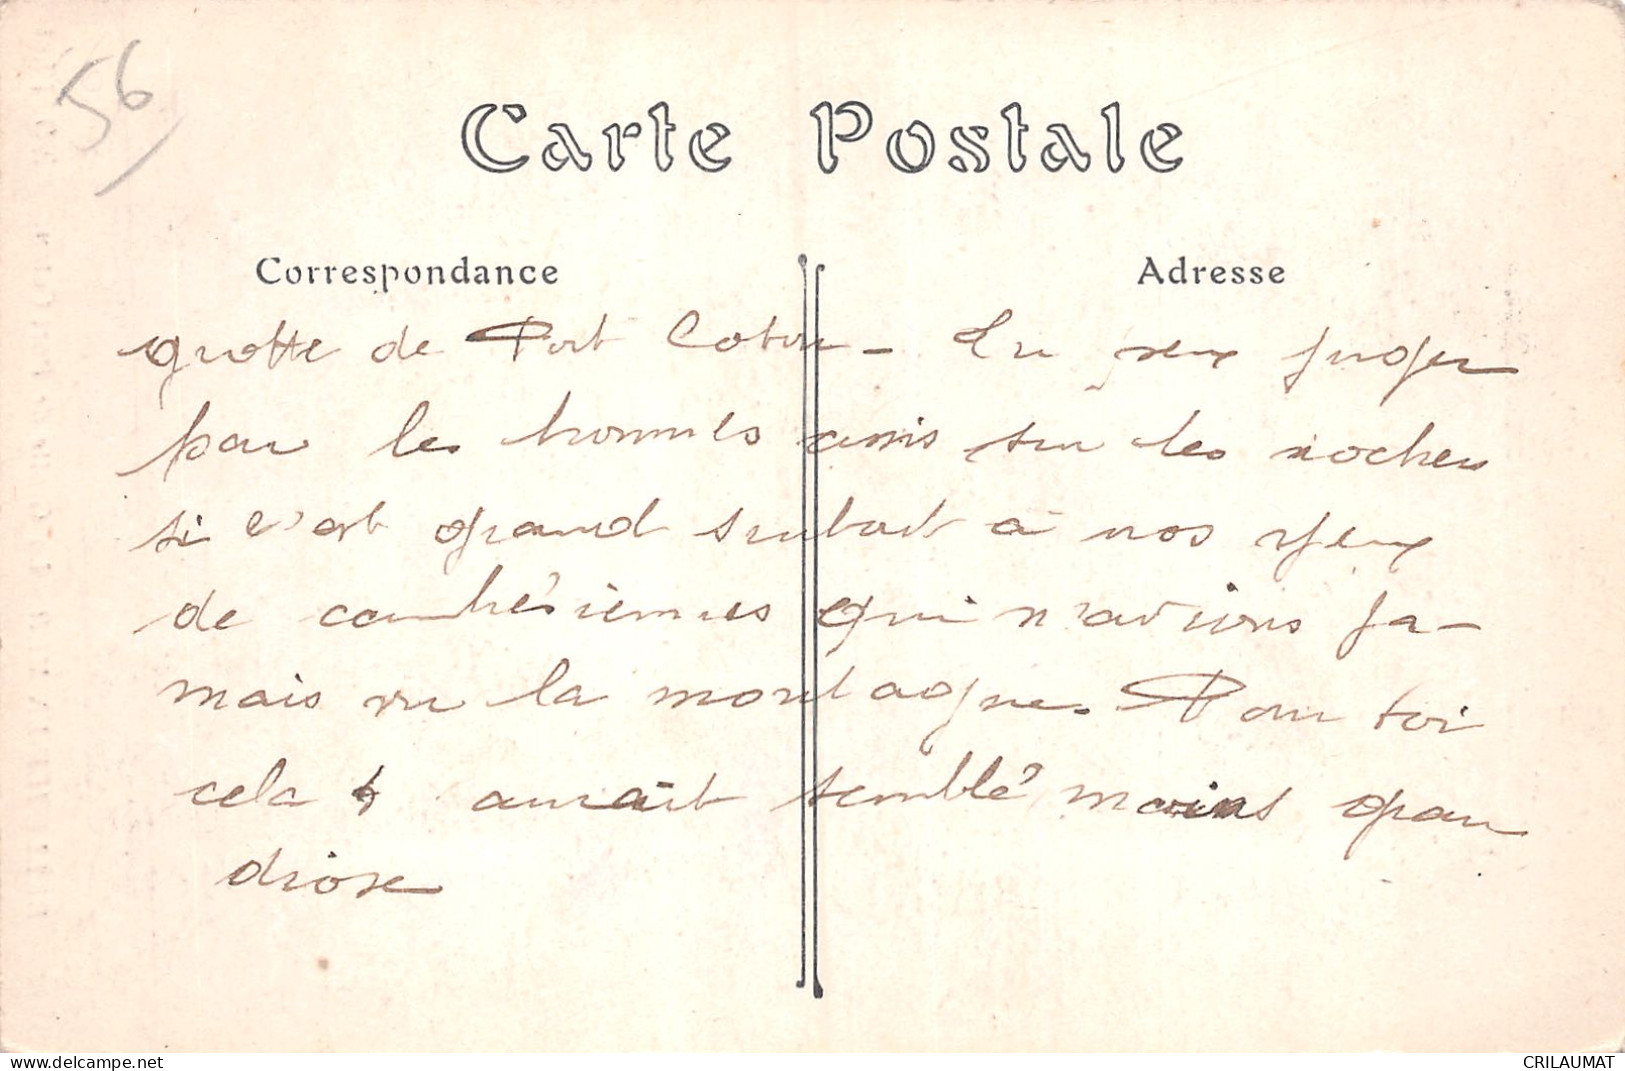 56
Carte Postale
Correspondance
Adresse
grotte de Port Coton - Tu peux juger
par les hommes assis sur les rochers
si c'est grand surtout à nos yeux
de qui n'avions ja-
mais vu la montagne. Pour toi
cela aurait semblé moins gran
diose
CRILAUMAT
delcampe.net